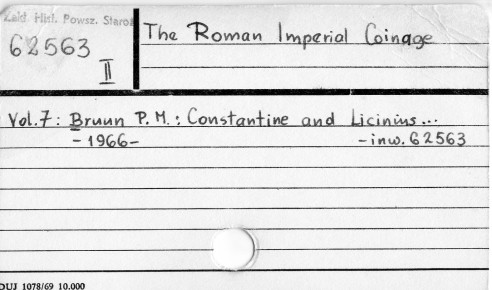 Zakł. Hist. Powsz. Staroż
62563
II
The Roman Imperial Coinage
Vol.7: Bruun P. M.: Constantine and Licinius...
-1966-
-inw. 62563
DUJ 1078/69 10.000